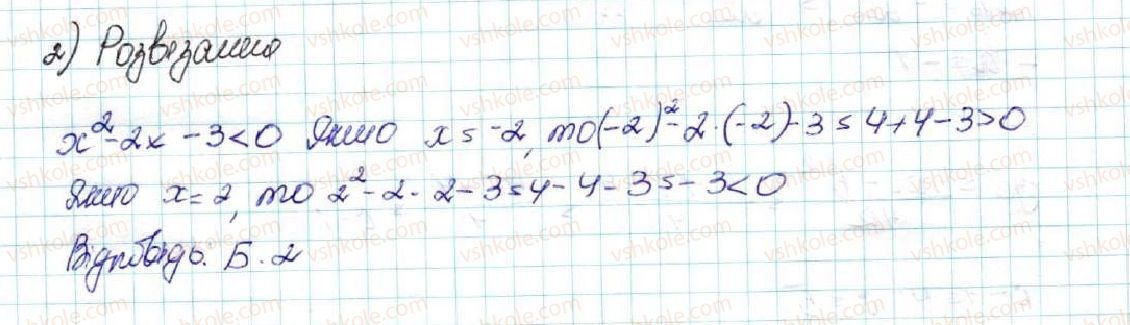 2) Розвязання
x² - 2x - 3 < 0 Якщо x = -2, то (-2)² - 2·(-2) - 3 = 4 + 4 - 3 > 0
Якщо x = 2, то 2² - 2·2 - 3 = 4 - 4 - 3 = -3 < 0
Відповідь. Б. 2